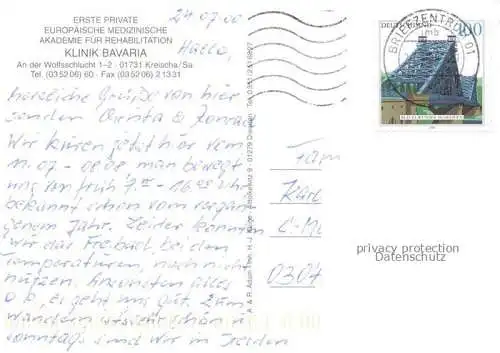 ERSTE PRIVATE
EUROPÄISCHE MEDIZINISCHE
AKADEMIE FÜR REHABILITATION
KLINIK BAVARIA
An der Wolfsschlucht 1-2 · 01731 Kreischa/Sa
Tel. (03 52 06) 60 · Fax (03 52 06) 2 13 31
24.07.00
Hallo,
herzliche Grüße von hier
senden
Wir kuren jetzt hier vom
11.07 - 08.08 man bewegt
uns von früh 7.00 - 16.00 Uhr
bekannt schon vom vergan
genem Jahr. Leider konnten
wir das Freibad bei den
Temperaturen, noch nicht
nutzen. Ansonsten alles
o.k., es geht uns gut. Zum
wandern ist es sehr schön u.
sonntags sind wir in
A. & R. Adam
01279 Dresden
DEUTSCHLAND
100
BRIEFZENTRUM 01
mb
Fam
Karl
0304
privacy protection
Datenschutz